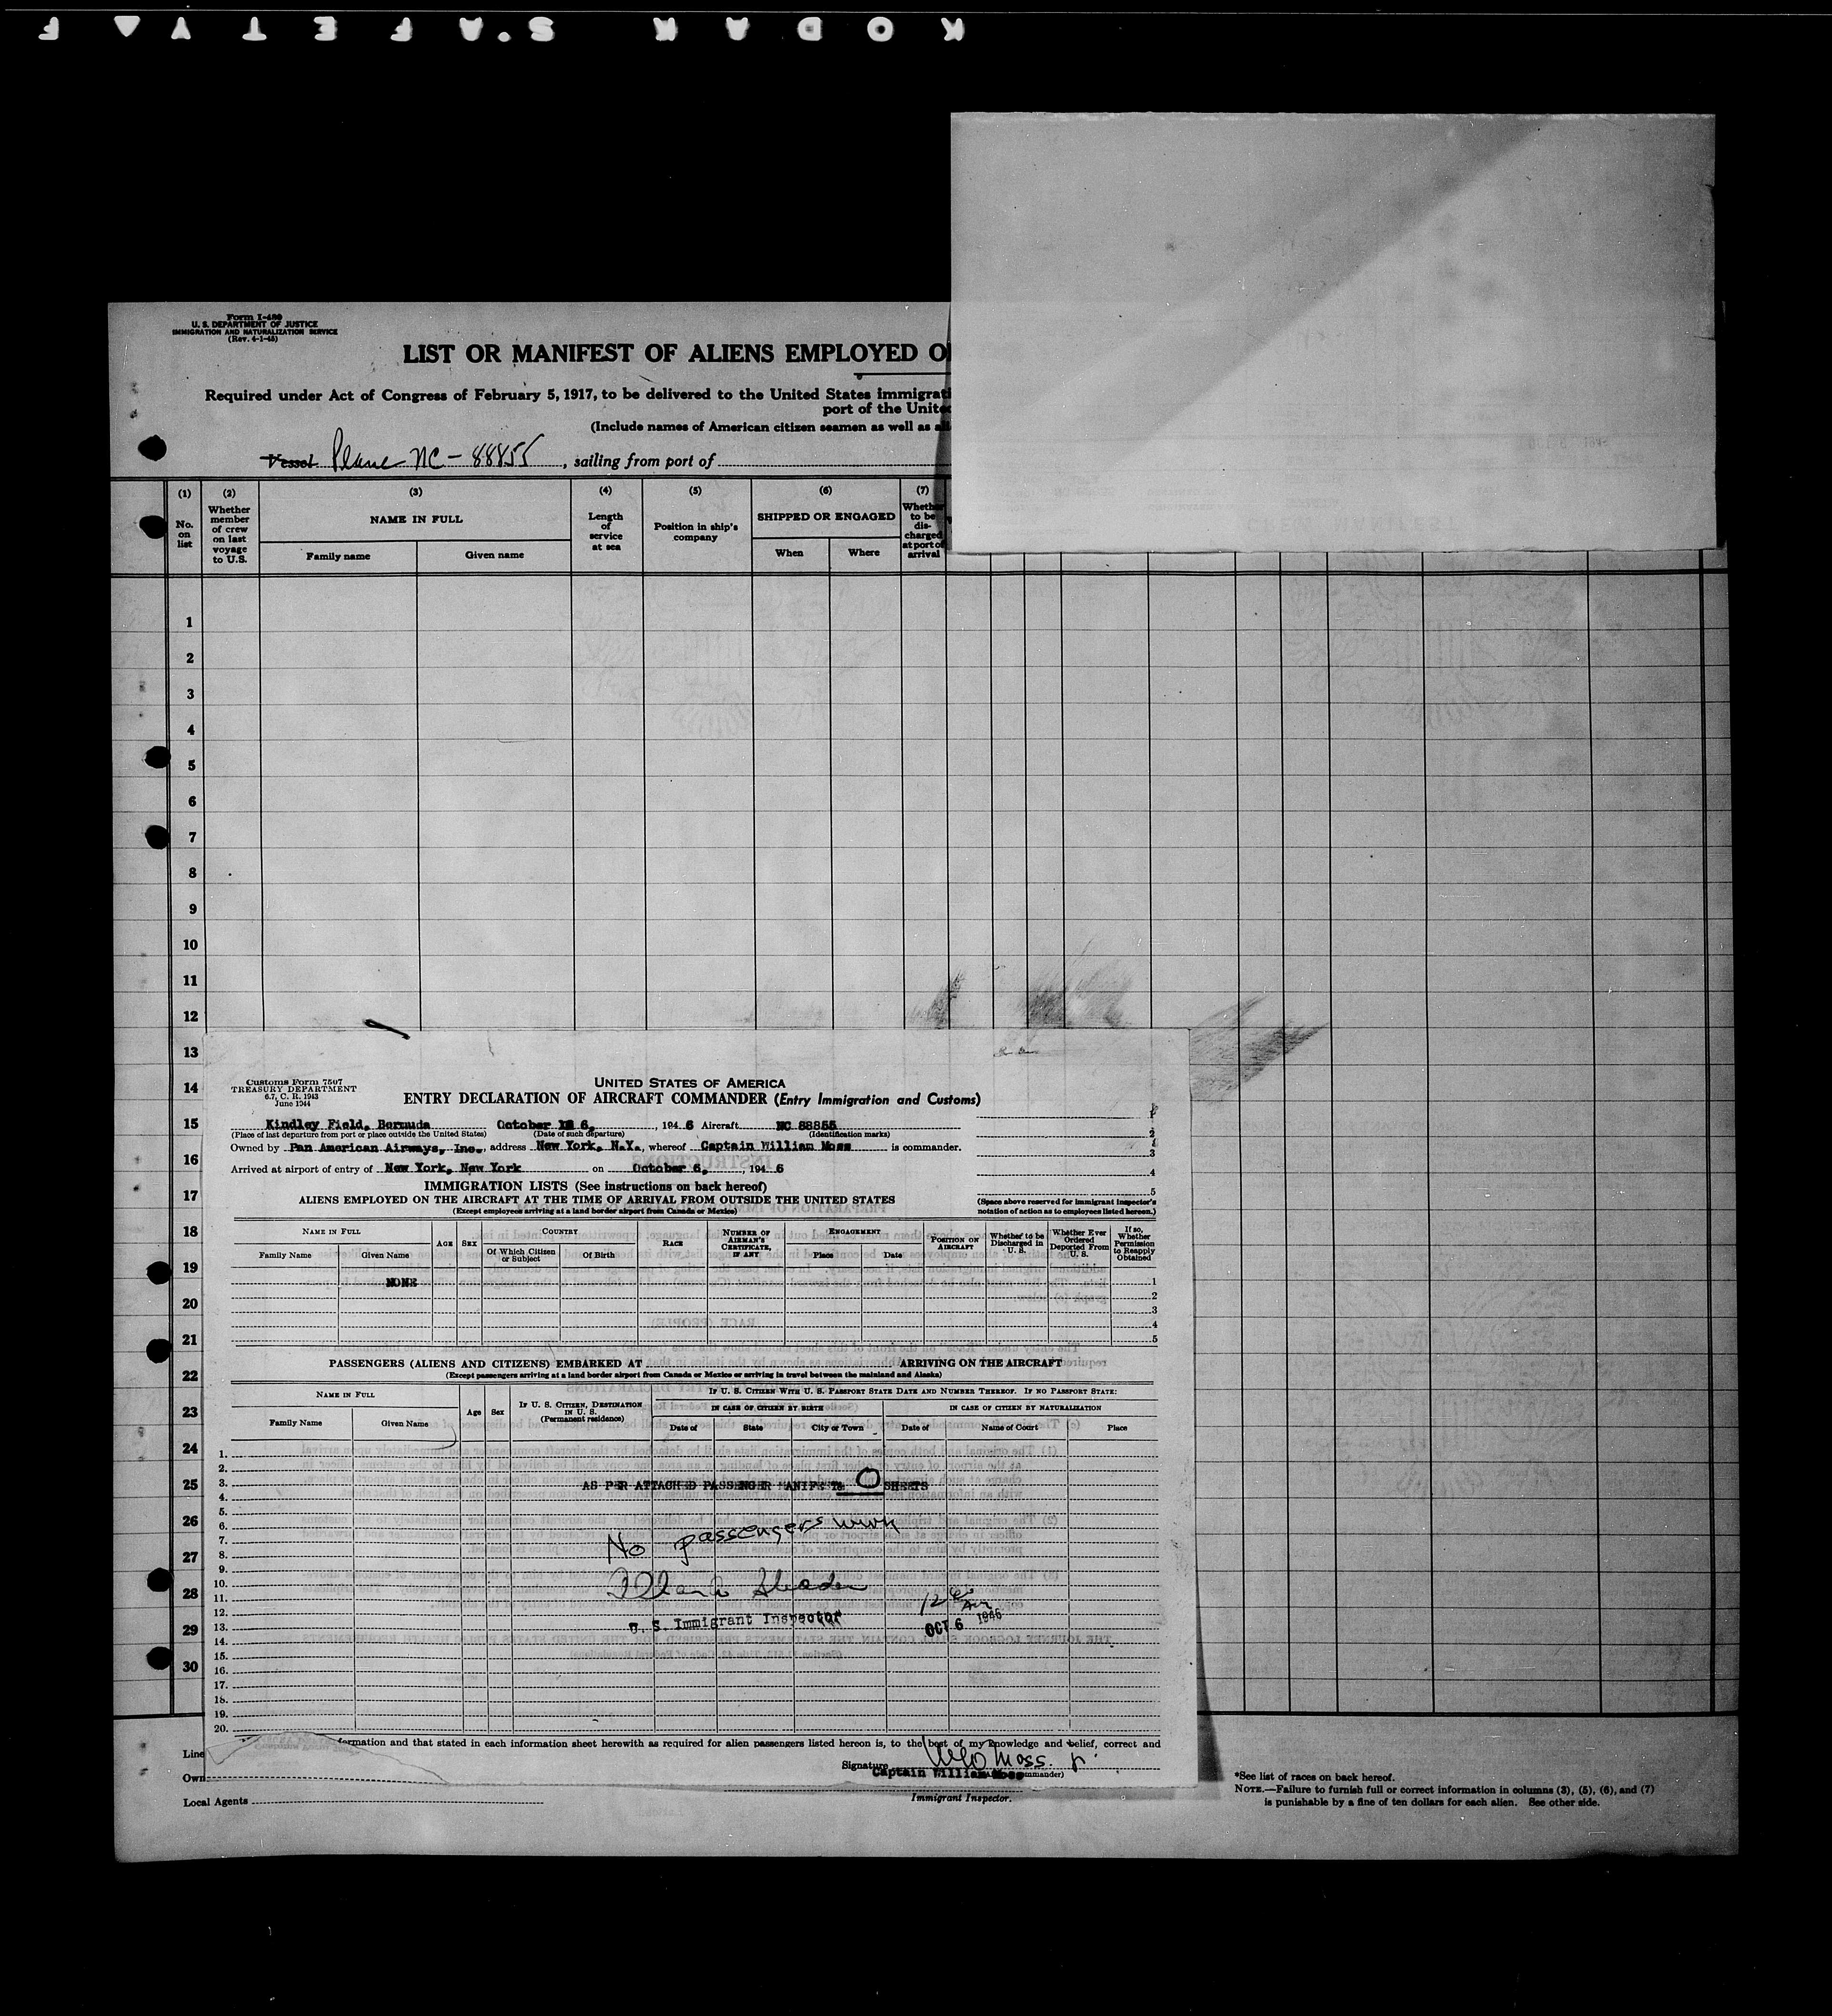 KODAK SAFETY F
Form I-480
U. S. DEPARTMENT OF JUSTICE
IMMIGRATION AND NATURALIZATION SERVICE
(Rev. 4-1-45)
LIST OR MANIFEST OF ALIENS EMPLOYED O
Required under Act of Congress of February 5, 1917, to be delivered to the United States immigrati
port of the Unite
(Include names of American citizen seamen as well as
Vessel Plane NC-88855, sailing from port of
(1) (2) (3) (4) (5) (6) (7)
No. on list
Whether member of crew on last voyage to U.S.
NAME IN FULL
Family name Given name
Length of service at sea
Position in ship's company
SHIPPED OR ENGAGED
When Where
Whether to be discharged at port of arrival
1
2
3
4
5
6
7
8
9
10
11
12
13
14
15
16
17
18
19
20
21
22
23
24
25
26
27
28
29
30
Customs Form 7507
TREASURY DEPARTMENT
6.7, C. R. 1943
June 1944
UNITED STATES OF AMERICA
ENTRY DECLARATION OF AIRCRAFT COMMANDER (Entry Immigration and Customs)
Kindley Field, Bermuda October 6, 194 6 Aircraft NC 88855
(Place of last departure from port or place outside the United States) (Date of such departure) (Identification marks)
Owned by Pan American Airways, Inc., address New York, N.Y., whereof Captain William Moss is commander.
Arrived at airport of entry of New York, New York on October 6, 194 6
1
2
3
4
5
(Space above reserved for immigrant inspector's notation of action as to employees listed hereon.)
IMMIGRATION LISTS (See instructions on back hereof)
ALIENS EMPLOYED ON THE AIRCRAFT AT THE TIME OF ARRIVAL FROM OUTSIDE THE UNITED STATES
(Except employees arriving at a land border airport from Canada or Mexico)
NAME IN FULL
Family Name Given Name
AGE SEX
COUNTRY
Of Which Citizen or Subject Of Birth
RACE
NUMBER OF AIRMAN'S CERTIFICATE, IF ANY
ENGAGEMENT
Place Date
POSITION ON AIRCRAFT
Whether to be Discharged in U. S.
Whether Ever Ordered Deported From U. S.
If so, Whether Permission to Reapply Obtained
NONE 1
2
3
4
5
PASSENGERS (ALIENS AND CITIZENS) EMBARKED AT ARRIVING ON THE AIRCRAFT
(Except passengers arriving at a land border airport from Canada or Mexico or arriving in travel between the mainland and Alaska)
NAME IN FULL
Family Name Given Name
Age Sex
IF U. S. CITIZEN, DESTINATION IN U. S.
(Permanent residence)
IF U. S. CITIZEN WITH U. S. PASSPORT STATE DATE AND NUMBER THEREOF. IF NO PASSPORT STATE:
IN CASE OF CITIZEN BY BIRTH IN CASE OF CITIZEN BY NATURALIZATION
Date of State City or Town Date of Name of Court Place
1.
2.
3.
AS PER ATTACHED PASSENGER MANIFESTS O SHEETS
4.
5.
6.
7.
No passengers
8.
9.
10.
11.
12.
U. S. Immigrant Inspector
OCT 6 1946
13.
14.
15.
16.
17.
18.
19.
20.
formation and that stated in each information sheet herewith as required for alien passengers listed hereon is, to the best of my knowledge and belief, correct and
Signature Moss Jr.
Captain William Moss mmander)
Line
Own
Local Agents
Immigrant Inspector.
*See list of races on back hereof.
NOTE.—Failure to furnish full or correct information in columns (3), (5), (6), and (7)
is punishable by a fine of ten dollars for each alien. See other side.